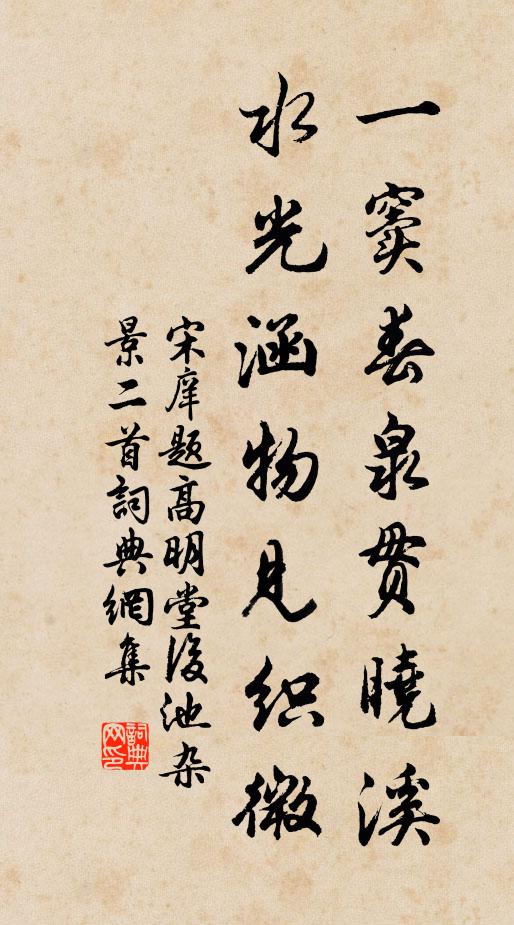 一窦春泉貫曉溪
水光涵物見织微
宋庠题高明堂後池杂
景二首詞典網集
詞典网印